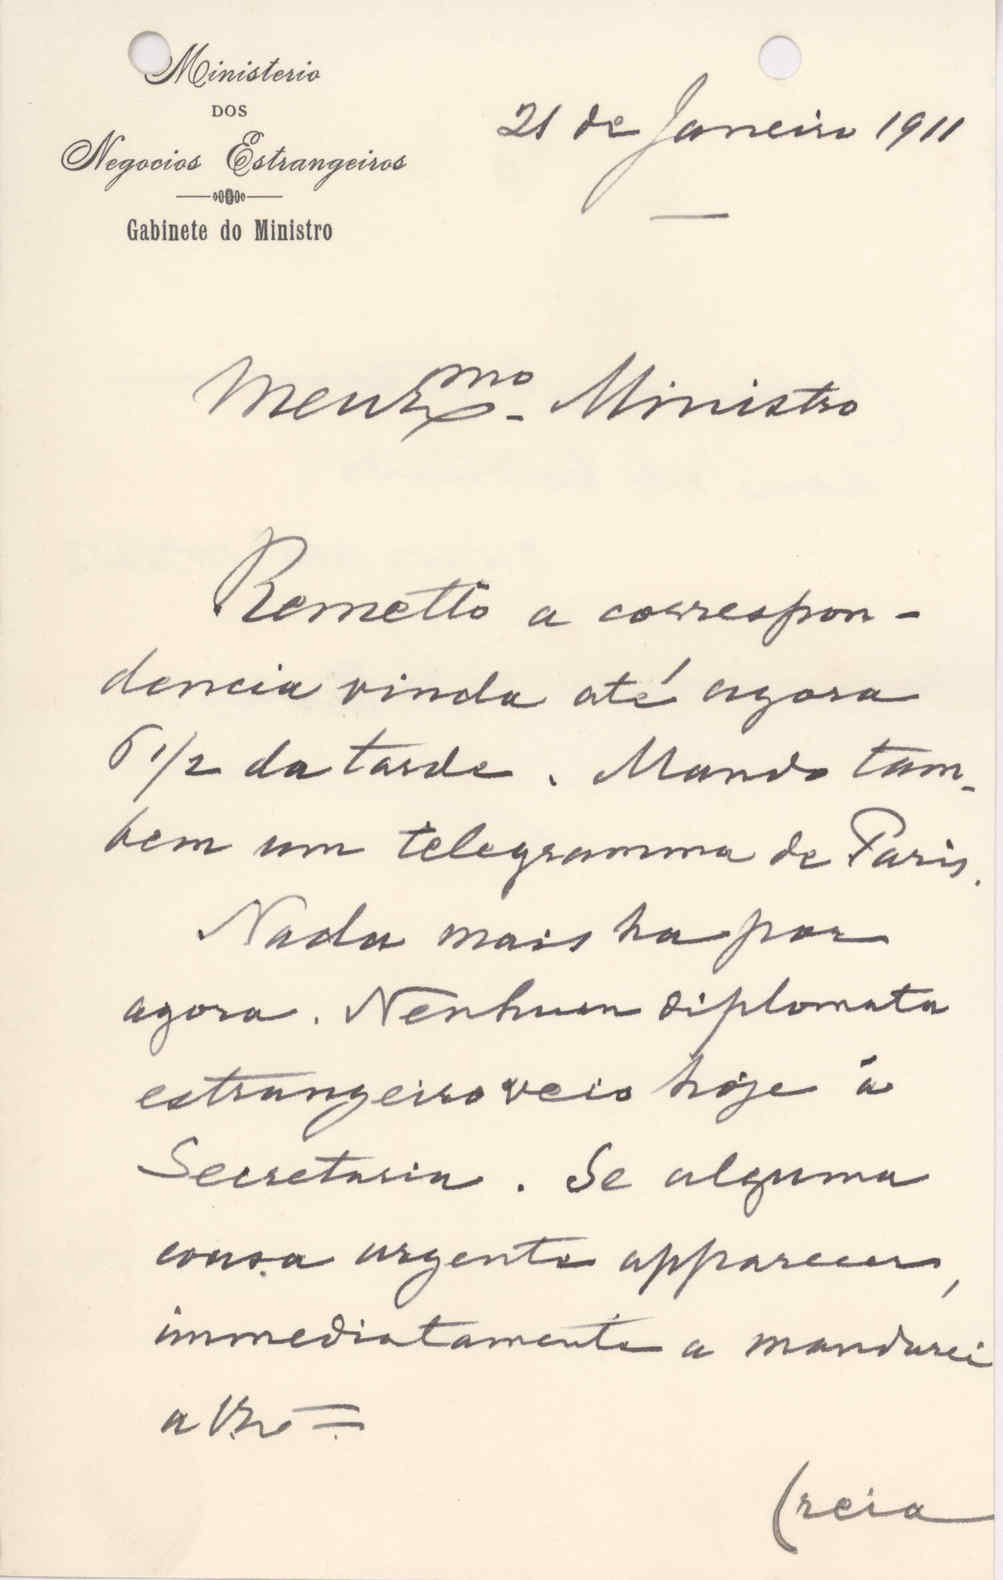 Ministerio
DOS
Negocios Estrangeiros
Gabinete do Ministro
21 de Janeiro 1911
Meu Exmo. Ministro
Remetto a correspon-
dencia vinda até agora
6 1/2 da tarde. Mando tam-
bem um telegramma de Paris.
Nada mais ha por
agora. Nenhum diplomata
estrangeiro veio hoje á
Secretaria. Se alguma
cousa urgente apparecer,
immediatamente a mandarei
a
Creia